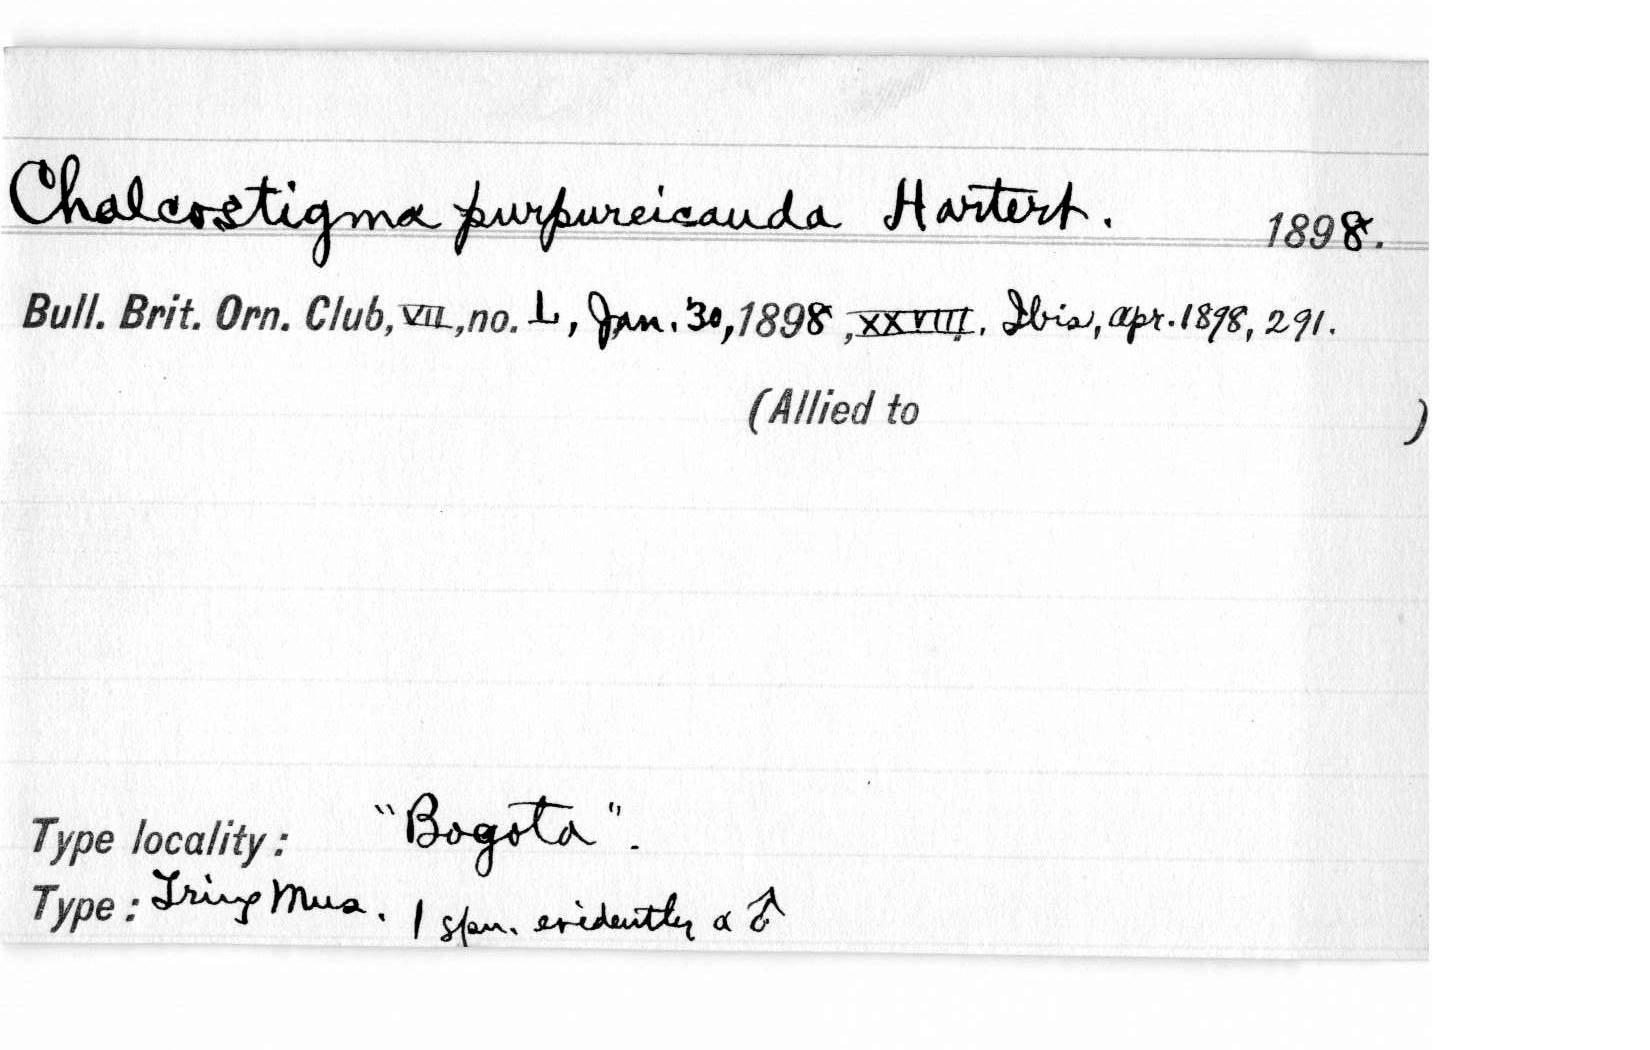 Chalcostigma purpureicauda Hartert. 1898.
Bull. Brit. Orn. Club, VII, no. L, Jan. 30, 1898, XXVIII. Ibis, Apr. 1898, 291.
(Allied to )
Type locality: "Bogota".
Type: Tring Mus. 1 spm. evidently a ♂